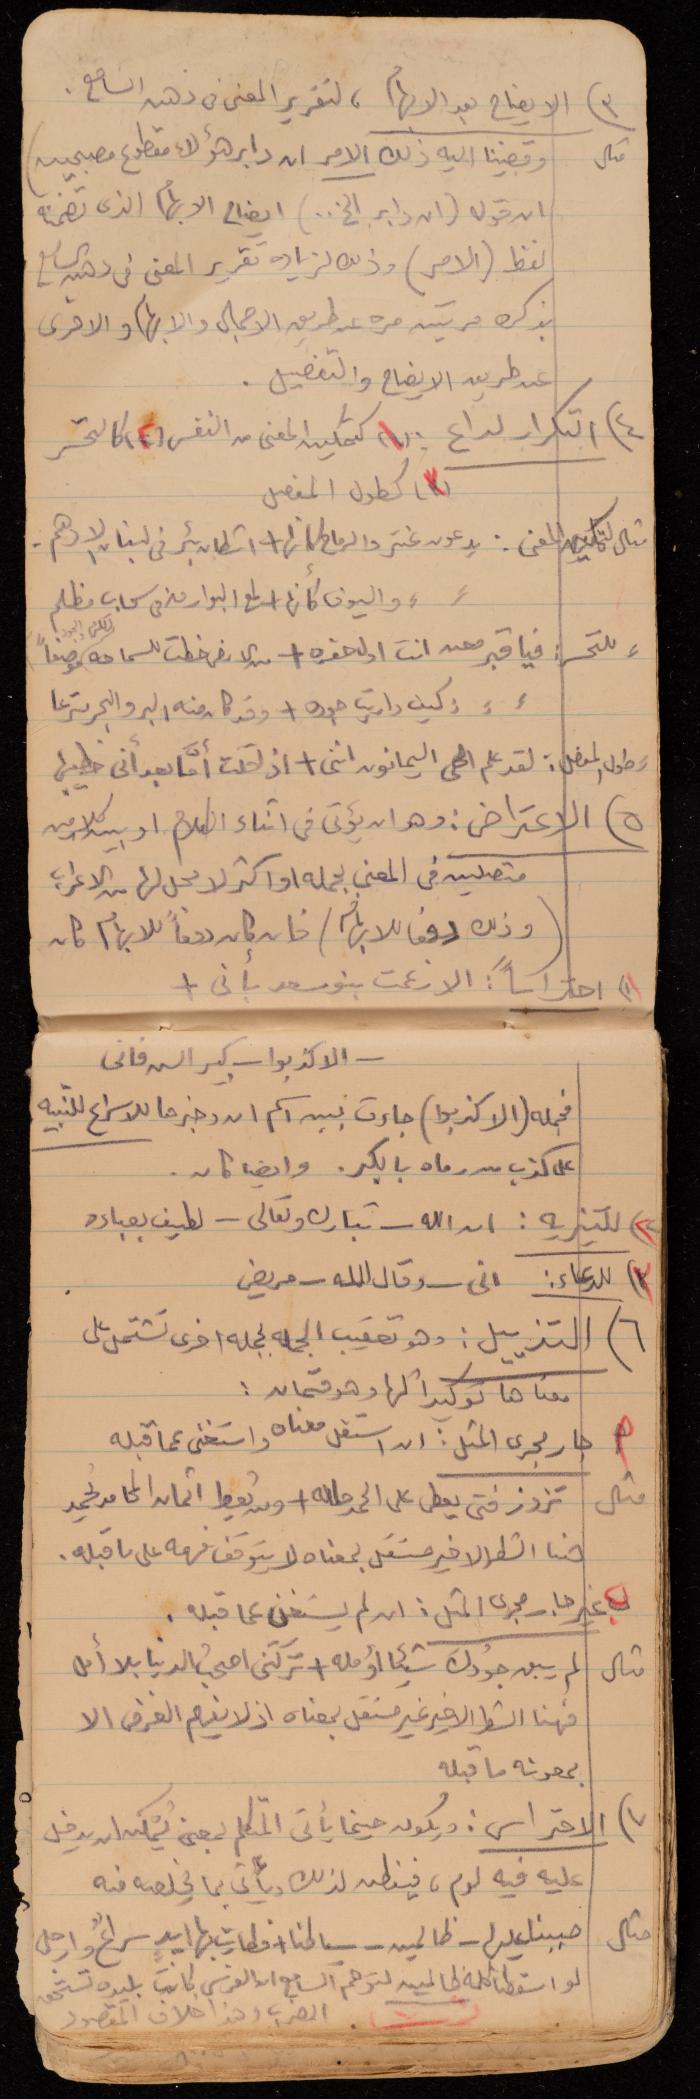 ٣) الايضاح بعد الابهام ، لتقرير المعنى فى ذهن السامع .
مثال وقضينا اليه ذلك الامر ان دابر هؤلاء مقطوع مصبحين )
ان قوله ( ان دابر الخ .. ) ايضاح الابهام الذى تضمنه
لفظ ( الامر ) وذلك لزياده تقرير المعنى فى ذهن السامع
بذكره مرتين مره عن طريق الاجمال والابهام والاخرى
عن طريق الايضاح والتفصيل .
٤) التكرار لداع : (١) كتمكين المعنى من النفس (٢) كالتحسر
(٣) كطول الفصل
مثال لتمكين المعنى : يدعون عنتر والرماح كأنها + اشطان بئر فى لبان الادهم .
〃 〃 والسيوف كأنها + لمع البوارق فى سحاب مظلم
〃 للتحسر : فيا قبر معن انت اول حفره + من الارض خطت للسماحه موضعاً
〃 〃 〃 : كيف واريت جوده + وقد كان منه البر والبحر مترعا
〃 طول الفصل : لقد علم الحى اليمانون اننى + اذا قلت أمّا بعد أنى خطيبها
٥) الاعتراض : وهو ان يؤتى فى اثناء الكلام او بين كلامين
متصلين فى المعنى بجمله او اكثر لا محل لها من الاعراب
( وذلك دفعا للابهام ) فان كان دفعاً للابهام كان
١) احتراساً : الا زعمت بنو سعد بأنى +
– الا كذبوا – كبير السن فانى
فجمله ( الا كذبوا ) جاءت بين اسم ان وخبرها للاسراع للتنبيه
على كذب من رماه بالكبر . وايضا كان .
٢) للتنزيه : ان الله – تبارك وتعالى – لطيف بعباده
٣) للدعاء : انى – وقاك الله – مريض
٦) التذييل : وهو تعقيب الجمله بجمله اخرى تشتمل على
معناها توكيداً لها وهو قسمان :
أ جار مجرى المثل : ان استقل معناه واستغنى عما قبله
مثال تزور فتى يعطى على الحمد ماله + ومن يعط اثمان المحامد يُحمد
هنا الشطر الاخير مستقل بمعناه لا يتوقف فهمه على ما قبله .
ب غير جار مجرى المثل : ان لم يستغن عما قبله .
مثال لم يبق جودك شيئا أؤمله + تركتنى اصحب الدنيا بلا أمل
فهنا الشطر الاخير غير مستقل بمعناه اذ لا يفهم الغرض الا
بمعونة ما قبله
٧) الاحتراس : ويكون حينما يأتى المتكلم بمعنى يُمكن ان يدخل
عليه فيه لوم ، فيفطن لذلك ويأتى بما يخلصه منه
مثال صببنا عليها – ظالمين – سياطنا + فطارت بها ايدٍ سراعٌ وارجل
لو اسقطنا كلمه ظالمين لتوهم السامع ان الفرس كانت بليده تستحق
الضرب وهذا خلاف المقصود